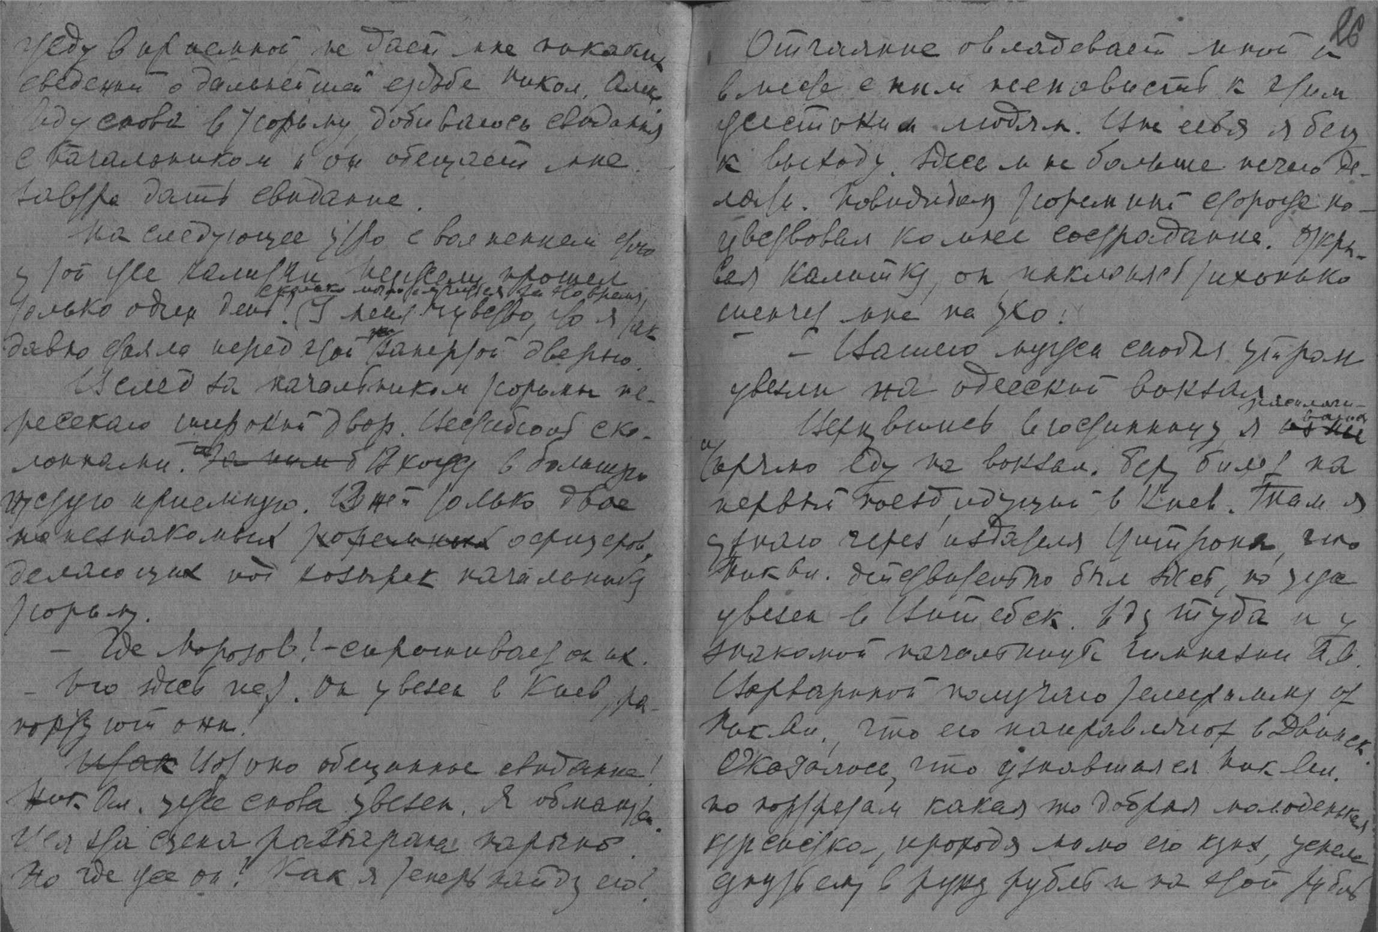 жду в приемной, не дает мне никаких
сведений о дальнейшей судьбе Никол. Алек.
Иду снова в тюрьму, добиваюсь свидания
с начальником и он обещает мне
завтра дать свидание.
На следующее утро с волнением стою
у той же калитки. Неужели прошел
только один день! У меня чувство, что я так
давно стояла перед этой запертой дверью.
Вслед за начальником тюрьмы пе-
ресекаю широкий двор. Вестибюль с ко-
лоннами. За ним Вхожу в большую
пустую приемную. В ней только двое
незнакомых тюремных офицеров,
делающих под козырек начальнику
тюрьмы.
— Где Морозов? – спрашивает он их.
– Его здесь нет. Он увезен в Киев, ра-
портуют они!
Итак Вот оно обещанное свидание!
Ник. Ал. уже снова увезен. Я обманута.
Вся эта сцена разыграна нарочно.
Но где же он? Как я теперь найду его?
26
Отчаяние овладевает мной и
вместе с ним ненависть к этим
жестоким людям. Вне себя я бегу
к выходу. Здесь мне больше нечего де-
лать. Повидимому тюремный сторож по-
чувствовал ко мне сострадание. Откры-
вая калитку, он наклоняется и тихонько
шепчет мне на ухо:
— Вашего мужа сегодня утром
увезли на одесский вокзал.
Вернувшись в гостинницу, я
прямо еду на вокзал. Беру билет на
первый поезд, идущий в Киев. Там я
узнаю через издателя Цитрона, что
Ник. Ал. действительно был здесь, но уже
увезен в Витебск. Еду туда и у
знакомой начальницы гимназии
Варвариной получаю телеграмму от
Ник. Ал., что его направляют в Двинск.
Оказалось, что узнавшая Ник. Ал.
по портретам какая то добрая молоденькая
курсистка, проходя мимо его купэ, успела
сунуть ему в руку рубль и на этот рубль